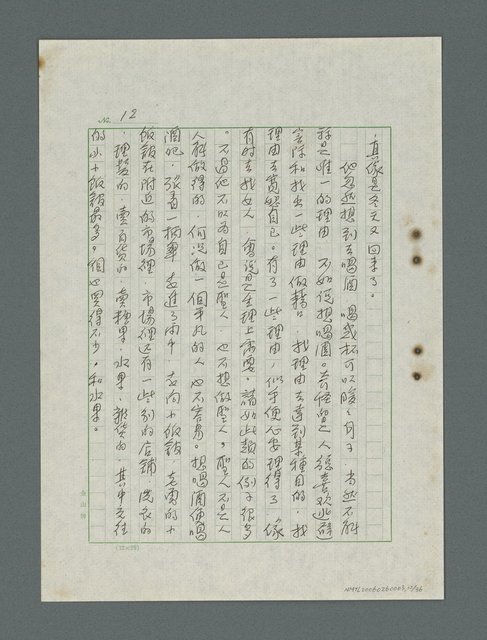 No. 12
，真像是冬天又回來了。
他忽然想到去喝酒，喝幾杯可以暖暖身子，當然不
是唯一的理由，不如說想喝酒。奇怪的人總喜歡逃避
實際和找出一些理由做藉口，找理由去達到某種目的，找
理由去寬恕自己。有了一些理由，似乎便心安理得了，像
有時去找女人，會說是生理上需要。諸如此類的例子很多
。不過他不以為自己是聖人，也不想做聖人。聖人不是人
人能做得的，何況做一個平凡的人也不容易。想喝酒便喝
酒吧，張著一柄傘，走進了雨中，走向小飯館，走向的小
飯館在附近的市場裡，市場裡還有一些別的店鋪，洗衣的
，理髮的，賣百貨的，賣糖果、水果、雜貨的，其中
的以小飯館最多。個也買得不少。和水果。
(12×25)
NMTL20060260003,12/36